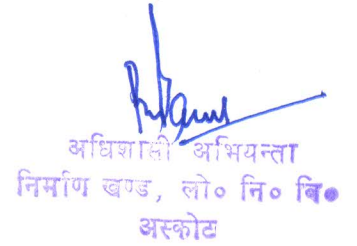 अधिशासी अभियन्ता
निर्माण खण्ड, लो० नि० वि०
अस्कोट